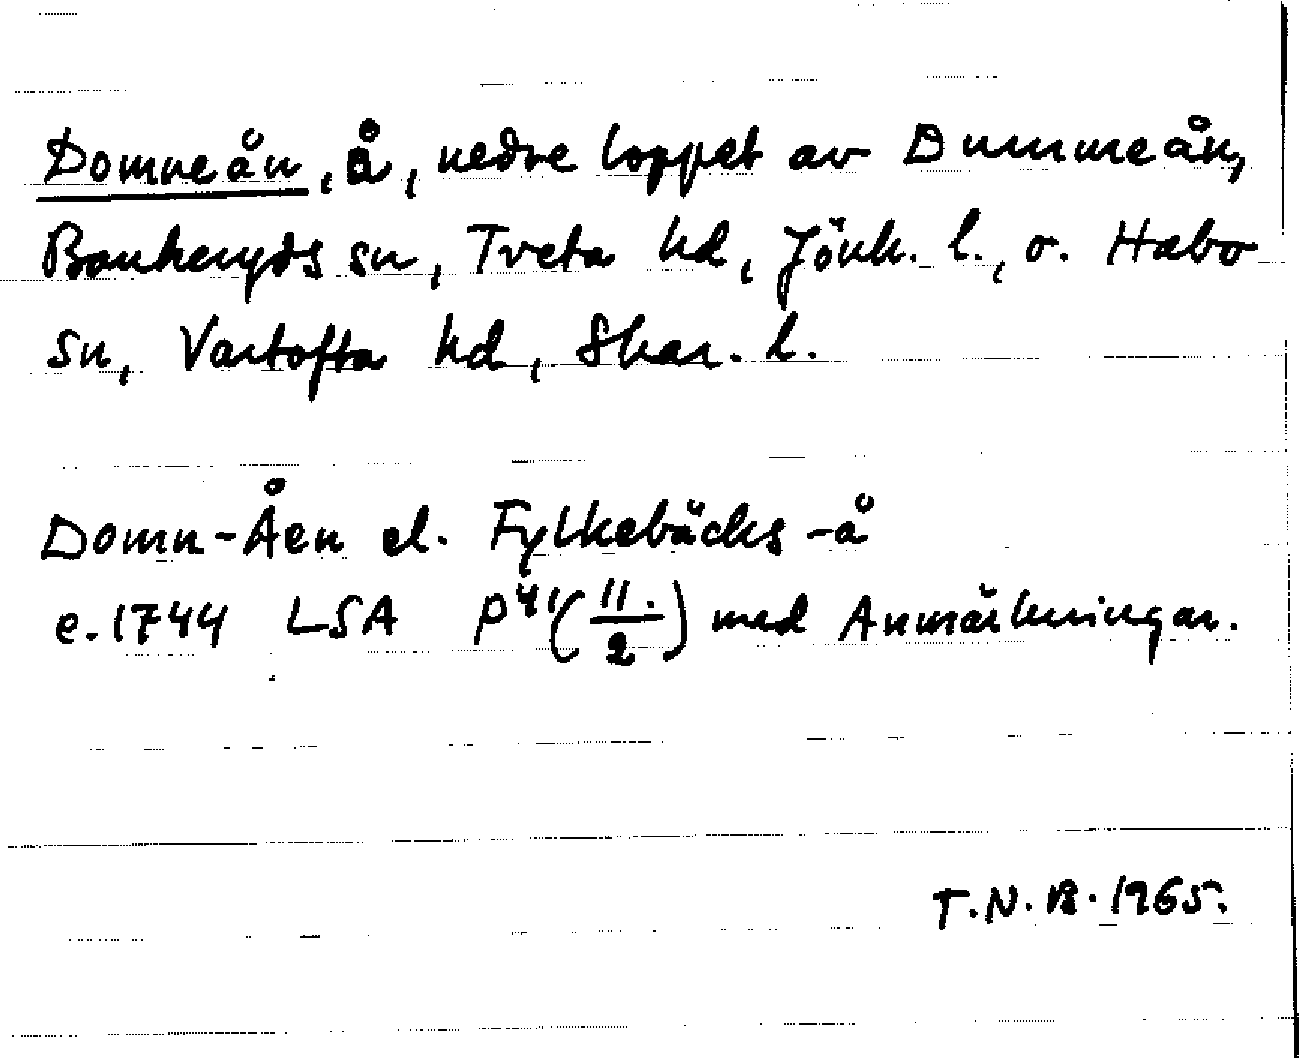 Domneån, å, nedre loppet av Dummeån,
Bankeryds sn, Tveta hd, Jönk. l., o. Habo
sn, Vartofta hd, Skar. l.
Domn-Åen el. Fylkebäcks-å
e. 1744 LSA P 41 (11./2) med Anmärkningar.
T.N.B. 1965.